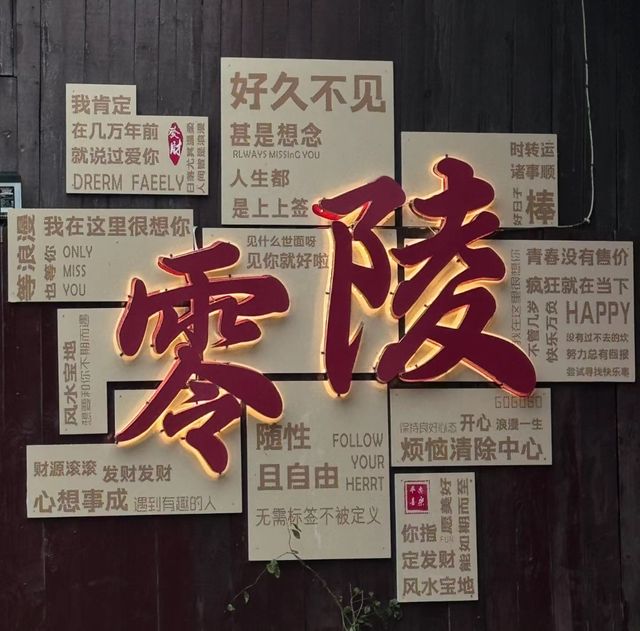 好久不见
甚是想念
RLWAYS MISSInG YOU
人生都
是上上签
我肯定
在几万年前
就说过爱你
DRERM FAEELY
發财
人间皆是浪漫
时转运
诸事顺
好日子
棒
等浪漫
也等你
我在这里很想你
ONLY
MISS
YOU
见什么世面呀
见你就好啦
零陵
青春没有售价
疯狂就在当下
不管几岁
快乐万负
HAPPY
没有过不去的坎
努力总有回报
尝试寻找快乐惠
我在这里很想你
风水宝地
想要和你不期而遇
GOGOGO
保持良好心态
开心
浪漫一生
烦恼清除中心
财源滚滚
发财发财
心想事成
遇到有趣的人
随性
且自由
FOLLOW
YOUR
HERRT
无需标签不被定义
愿美好
FUN
能如期而至
你指
定发财
风水宝地